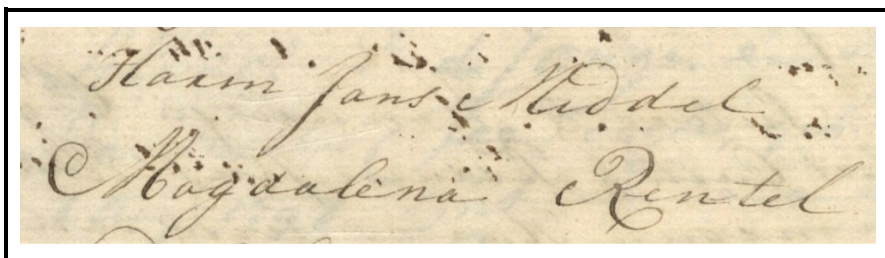 Harm Jans Middel
Magdalena Rentel